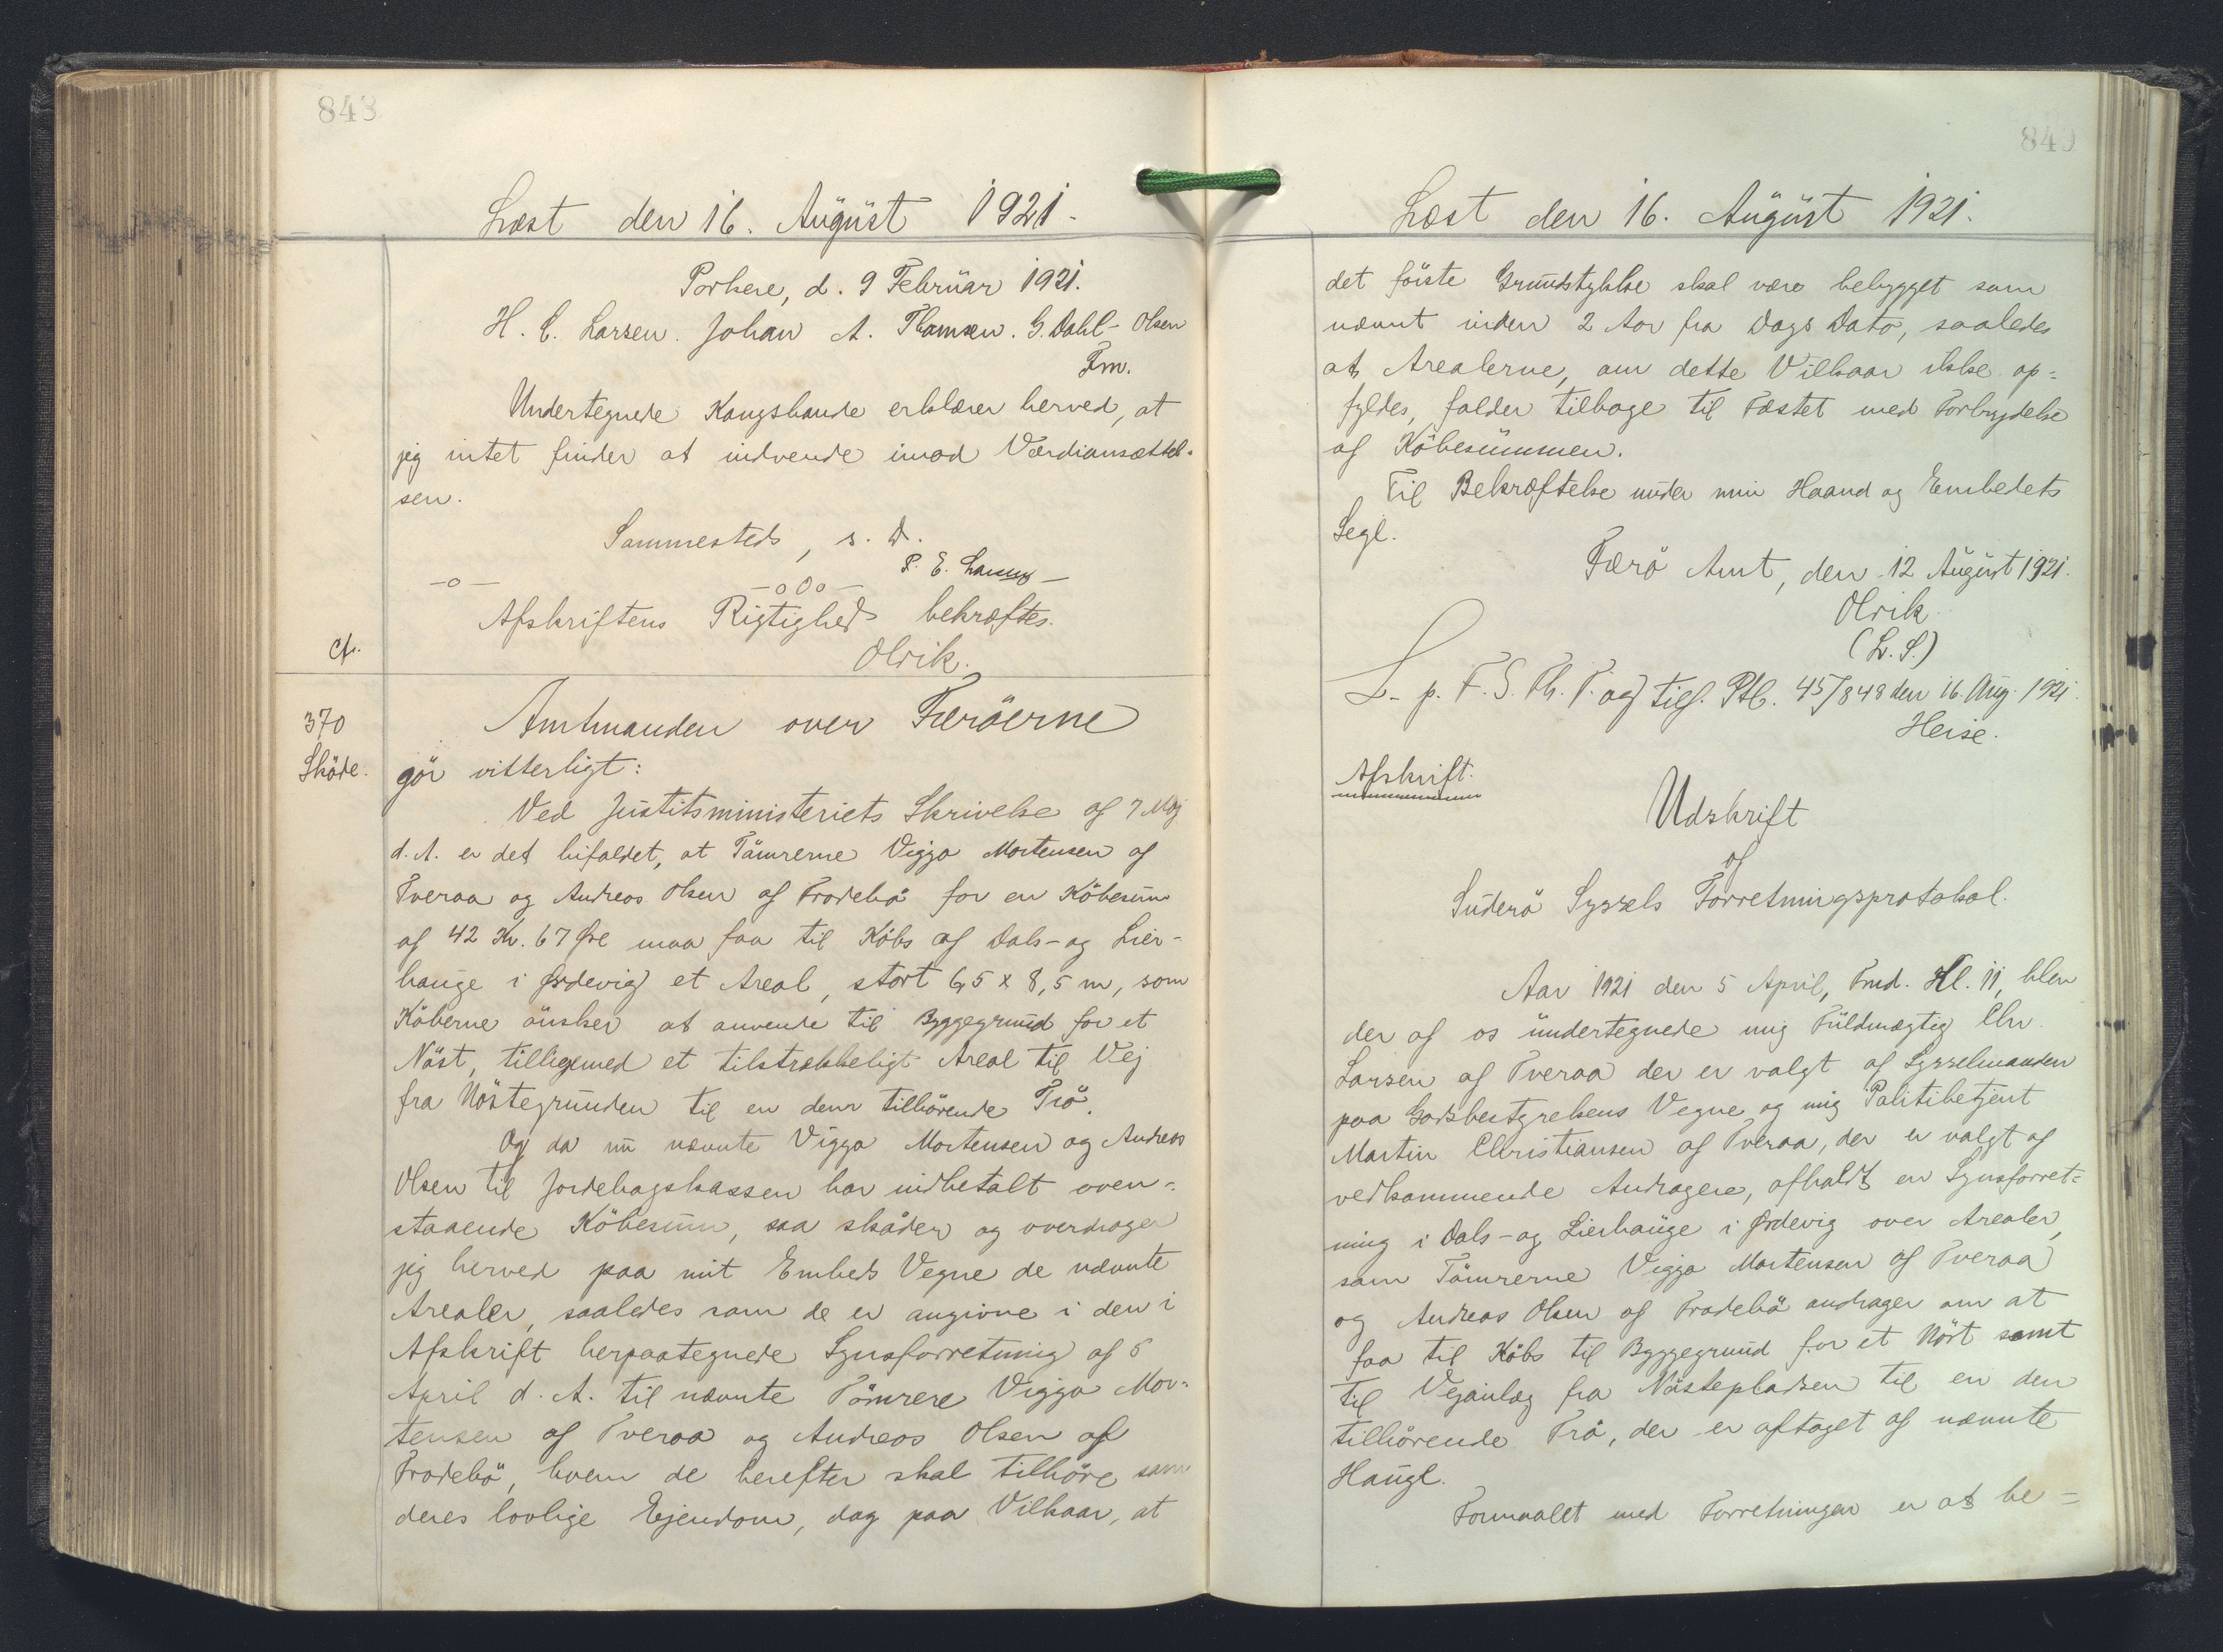 843
Læst den 16. August 1921.
Porkere, d. 9 Februar 1921.
H. C. Larsen. Johan A. Thomsen. G. Dahl-Olsen
Fm.
Undertegnede Kongsbonde erklærer herved, at
jeg intet finder at indvende imod Værdiansættel-
sen.
Sammesteds, s. D.
P. E. Larsen
-o- -oOo-
Afskriftens Rigtighed bekræftes.
Cfr.
Olrik.
370
Skøde.
Amtmanden over Færøerne
gör vitterligt:
Ved Justitsministeriets Skrivelse af 7 Maj
d. A. er det bifaldet, at Tömrerne Viggo Mortensen af
Tveraa og Andreas Olsen af Frodebö for en Köbesum
af 42 Kr. 67 Øre maa faa til Köbs af Dals- og Lier-
hauge i Ørdevig et Areal, stort 6,5 x 8,5 m, som
Köberne önsker at anvende til Byggegrund for et
Nöst, tilligemed et tilstrækkeligt Areal til Vej
fra Nöstegrunden til en dem tilhörende Trö.
Og da nu nævnte Viggo Mortensen og Andreas
Olsen til Jordebogskassen har indbetalt oven-
staaende Köbesum, saa sköder og overdrager
jeg herved paa mit Embeds Vegne de nævnte
Arealer, saaledes som de er angivne i den i
Afskrift herpaategnede Synsforretning af 5
April d. A. til nævnte Tömrere Viggo Mor-
tensen af Tveraa og Andreas Olsen af
Frodebö, hvem de herefter skal tilhöre som
deres lovlige Ejendom, dog paa Vilkaar, at
849
Læst den 16. August 1921.
det förste Grundstykke skal være bebygget som
nævnt inden 2 Aar fra Dags Dato, saaledes
at Arealerne, om dette Vilkaar ikke op-
fyldes, falder tilbage til Fæstet med Forbrydelse
af Köbesummen.
Til Bekræftelse under min Haand og Embedets
Segl.
Færö Amt, den 12 August 1921.
Olrik.
(L. S.)
L. p. F. S. Th. T. og tilf. Ptl. 45/848 den 16. Aug. 1921.
Heise.
Afskrift.
Udskrift
af
Suderö Syssels Forretningsprotokol.
Aar 1921 den 5 April, Fmd. Kl. 11, blev
der af os undertegnede mig Fuldmægtig Chr.
Larsen af Tveraa der er valgt af Sysselmanden
paa Godsbestyrelsens Vegne og mig Politibetjent
Martin Christiansen af Tveraa, der er valgt af
vedkommende Andragere, afholdt en Synsforret-
ning i Dals- og Lierhauge i Ørdevig over Arealer,
som Tömrerne Viggo Mortensen af Tveraa
og Andreas Olsen af Frodebö andrager om at
faa til Köbs til Byggegrund for et Nöst samt
til Vejanlæg fra Nöstepladsen til en den
tilhörende Trö, der er aftaget af nævnte
Hauge.
Formaalet med Forretningen er at be-